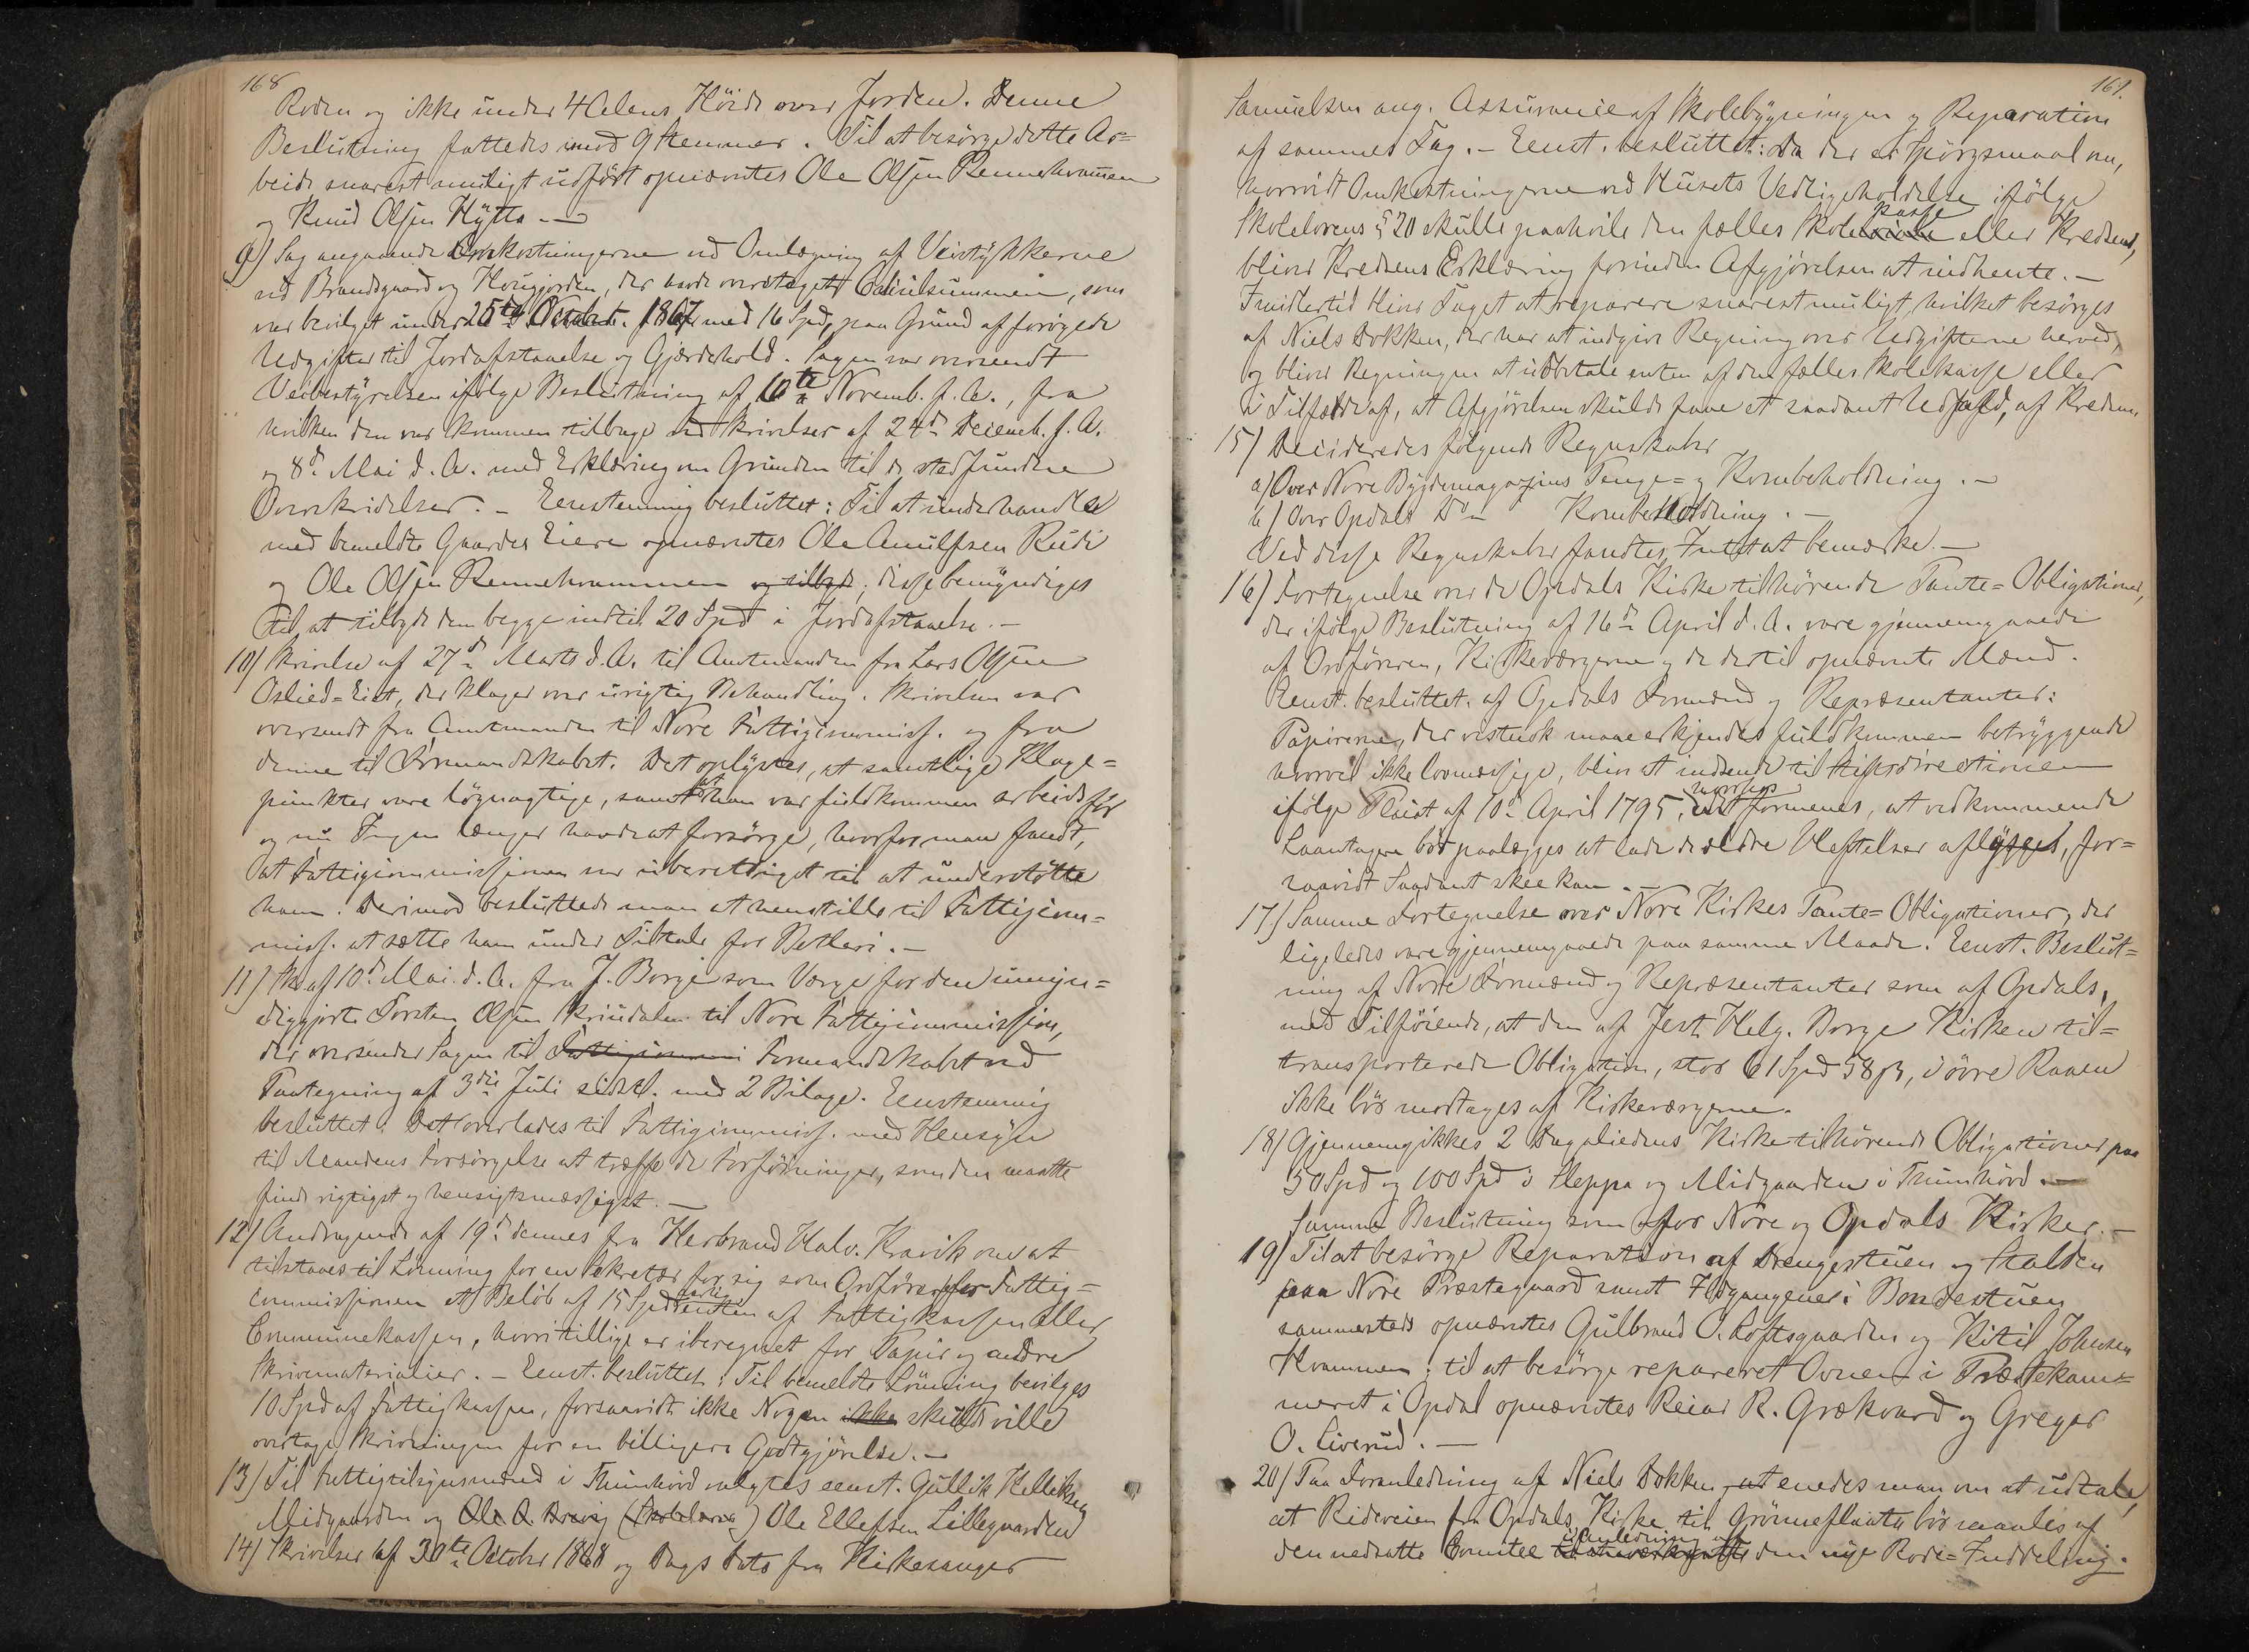 168
Roden og ikke under 4 Alens Höide over Jorden. Denne
Beslutning fattedes med 9 Stemmer. Til at besörge dette Ar=
beide snarest muligt udfört opnævntes Ole Olsen Rennehvammen
og Knud Olsen Hytta. —
9) Sag angaaende Omkostningerne ved Omlægning af Veistykkerne
ved Brandsgaard og Hougjorden, der havde oversteget Calculsummen, som
var bevilget under 25de Octobr. 1867 med 16 Spd, paa Grund af forögede
Udgifter til Jordafstaaelse og Gjærdehold. Sagen var oversendt
Veibestyrelsen ifölge Beslutning af 10te Novemb. f. A., fra
hvilken den var kommen tilbage med Skrivelser af 24de Decemb. f. A.
og 8de Mai d. A. med Erklæring om Grunden til de stedfundne
Overskridelser. – Eenstemmig besluttet: Til at underhandle
med bemeldte Gaardes Eiere opnævntes Ole Anulfsen Rudi
og Ole Olsen Rennehvammen og tilbyde, disse bemyndiges
til at tilbyde dem begge indtil 20 Spd i Jordafstaaelse. –
10) Skrivelse af 27de Marts d. A. til Amtmanden fra Lars Olsen
Oslied=Eiet, der klager over urigtig Behandling. Skrivelsen var
oversendt fra Amtmanden til Nore Fattigcommiss. og fra
denne til Formandskabet. Det oplystes, at samtlige Klage=
punkter vare lögnagtige, samt at han var fuldkommen arbeidsför
og nu Ingen længer havde at forsörge, hvorfor man fandt,
at Fattigcommissionen var uberettiget til at understötte
ham. Derimod besluttede man at henstille til Fattigcom=
miss. at sætte ham under Tiltale for Betleri. –
11) Skr. af 10de Mai d. A. fra J. Borge som Værge for den umyn=
diggjorte Torsten Olsen Skrindalen til Nore Fattigcommission,
der oversender Sagen til Fattigcommi Formandskabet ved
Paategning af 3die Juli sidstl. med 2 Bilage. Eenstemmig
besluttet: Det overlades til Fattigcommiss. med Hensyn
til Mandens Forsörgelse at træffe de Forföininger, som den maatte
finde rigtigst og hensigtsmæssigst. –
12) Andragende af 19de dennes fra Herbrand Halv. Kravik om at
tilstaaes til Lönning for en Sekretær for sig som Ordförer for Fattig=
commissionen et Beløb af 15 Spd aarlig enten af Fattigkassen eller
Communekassen, hvori tillige er iberegnet for Papir og andre
Skrivematerialier. – Eenst. besluttet: Til bemeldte Lönning bevilges
10 Spd af Fattigkassen, forsaavidt ikke Nogen ikke skulde ville
overtage Skrivningen for en billigere Godtgjörelse. –
13) Til Fattigtilsynsmænd i Thunhovd valgtes eenst. Gullik Kelliksen
Midgaarden og Ole O. Bravig (Skolelærer) Ole Ellefsen Lillegaarden
14) Skrivelser af 30te October 1868 og Dags Dato fra Kirkesanger
161.
Samuelsen ang. Assurance af Skolebygningen og Reparation
af sammes Tag. – Eenst. besluttet: Da der er Spörgsmaal om,
hvorvidt Omkostningerne ved Husets Vedligeholdelse ifölge
Skolelovens § 20 skulle paahvile den fælles Skolekasse eller Kredsen,
bliver Kredsens Erklæring forinden Afgjörelsen at indhente. –
Imidlertid bliver Taget at reparere snarest muligt, hvilket besörges
af Niels Dokken, der har at indgive Regning over Udgifterne herved,
og bliver Regningen at udbetale enten af den fælles Skolekasse eller
i Tilfælde af, at Afgjörelsen skulde faae et saadant Udfald, af Kredsen.
15) Decideredes fölgende Regnskaber
a) Over Nore Bygdemagazins Penge= og Kornbeholdning. –
b) Over Opdals Do – Kornbeholdning. –
Ved disse Regnskaber fandtes Intet at bemærke. –
16) Fortegnelse over de Opdals Kirke tilhörende Pante=Obligationer,
der ifölge Beslutning af 16de April d. A. vare gjennemgaaede
af Ordföreren, Kirkeværgerne og de dertil opnævnte Mænd.
Eenst. besluttet af Opdals Formænd og Repræsentanter:
Papirerne, der vistnok maae erkjendes fuldkommen betryggende
hvorvel ikke lovmæssige, bliver at indsende til Stiftsdirectionen
ifölge Placat af 10de April 1795, hvorhos formenes, at vedkommende
Laantagere bör paalægges at lade de ældre Heftelser aflyses, for=
saavidt Saadant skee kan. –
17) Samme Fortegnelse over Nore Kirkes Pante=Obligationer, der
ligeledes vare gjennemgaaede paa samme Maade. Eenst. Beslut=
ning af Nore Formænd og Repræsentanter som af Opdals,
med Tilföiende, at den af Jest. Helg. Borge Kirken til=
transporterede Obligation, stor 61 Spd 58 β, i övre Raaen
ikke bör modtages af Kirkeværgerne.
18) Gjennemgikkes 2 Dagaliedens Kirke tilhörende Obligationer paa
50 Spd og 100 Spd i Sleppa og Midgaarden i Thunhovd. —
Samme Beslutning som for Nore og Opdals Kirker. –
19) Til at besörge Reparation af Drengestuen og Stalden
paa Nore Præstegaard samt Ildgangene i Bondestuen
sammesteds opnævntes Gulbrand O. Loftsgaarden og Kittil Johnsen
Kvammen; til at besörge repareret Ovnen i Præstekam=
meret i Opdal opnævntes Reiar R. Grækvard og Gregar
O. Liverud. —
20) Paa Foranledning af Niels Dokken at enedes man om at udtale,
at Rideveien fra Opdals Kirke til Grönneflaata bör saaledes af
den nedsatte Comitee i Anledning af den nye Rode=Inddeling.